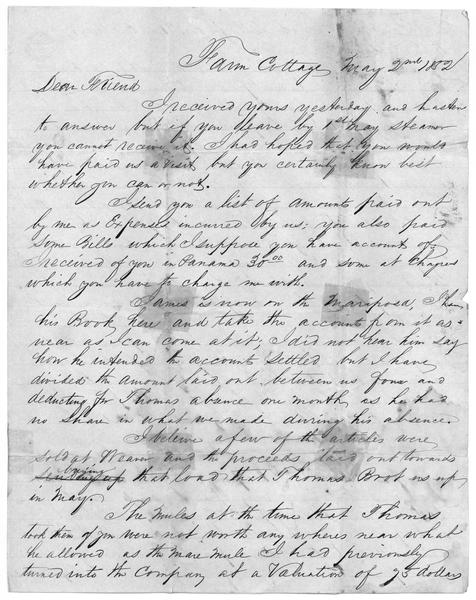 Farm Cottage May 2nd 1852
Dear Friend
I received yours yesterday and hasten
to answer but if you leave by 1st May steamer
you cannot receive it. I had hoped that you would
have paid us a visit but you certainly know best
whether you can or not.
I send you a list of amounts paid out
by me as Expenses incurred by us; you also paid
Some Bills which I suppose you have account of
I received of you in Panama 30.00 and some at Chagres
which you have to charge me with.
James is now on the Mariposa, I have
his Book here and take the account from it as
near as I can come at it; I did not hear him say
how he intended the accounts settled but I have
divided the amount paid out between us four and
deducting for Thomas absence one month as he had
no share in what we made during his absence.
I beleive a few of the articles were
sold at Weaver and the proceeds laid out towards
buying
that load that Thomas Brot us up
in May.
The mules at the time that Thomas
took them of you were not worth any wheres near what
he allowed as the mare mule I had previously
turned into the Company at a Valuation of 75 dollars